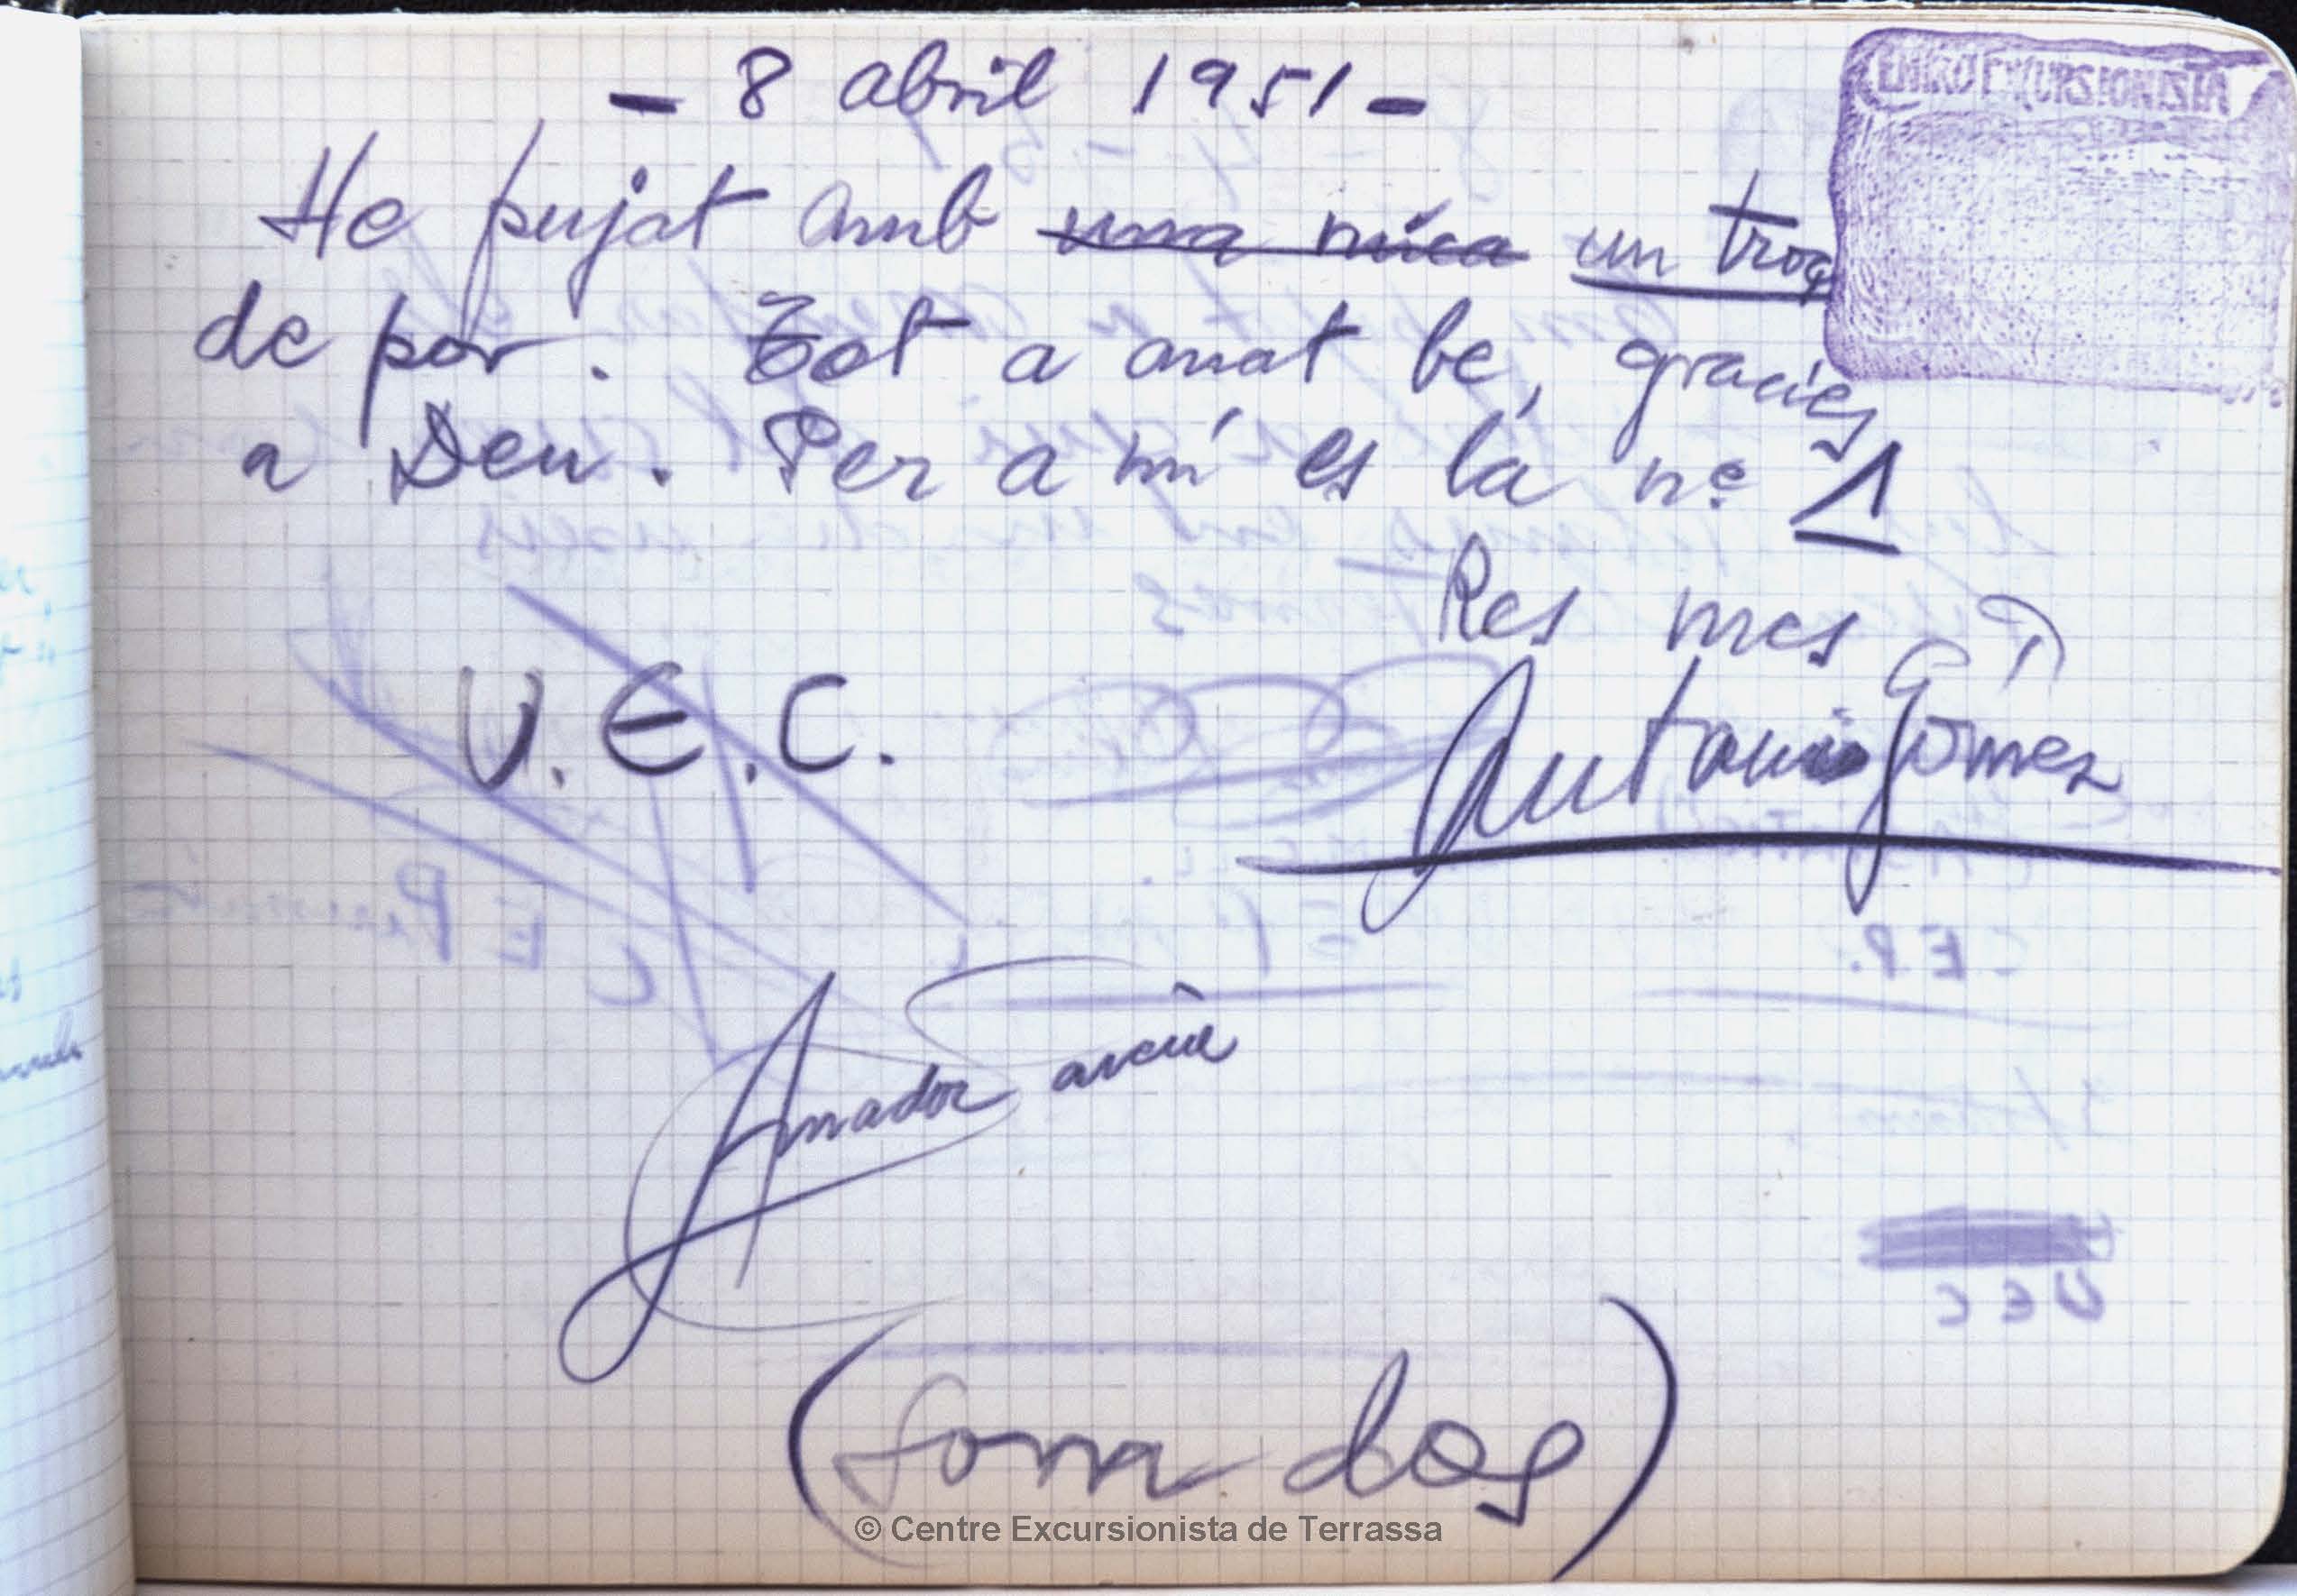 - 8 abril 1951 -
CENTRO EXCURSIONISTA
He pujat amb una mica un troç
de por. Tot a anat be, gracies
a Deu. Per a mí es la nº 1
Res mes
Antonio Gómez
U.E.C.
Amador
(Sona dos)
© Centre Excursionista de Terrassa